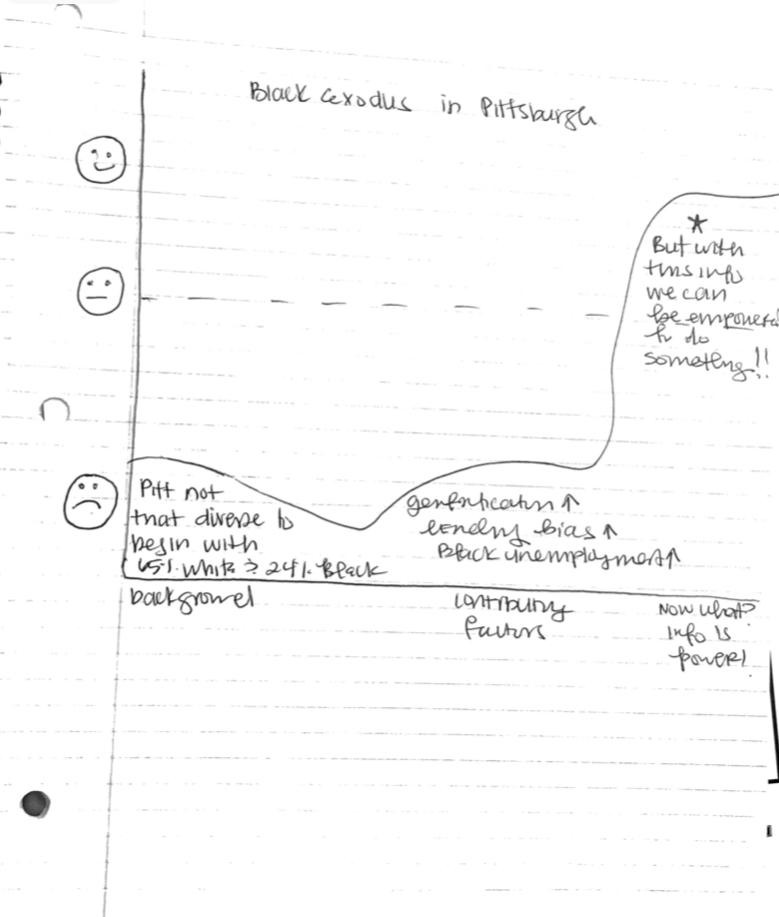 Black exodus in Pittsburgh
★
But with
this info
we can
be empowered
to do
something!!
Pitt not
that diverse to
begin with
65% White → 24% Black
gentrification ↑
lending bias ↑
Black unemployment ↑
background
contributing
factors
Now what?
info is
power!